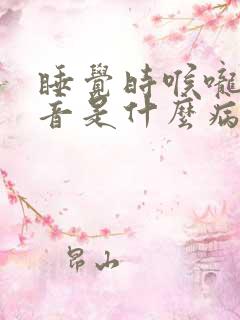 睡覺時喉嚨
音是什麼病
昂山